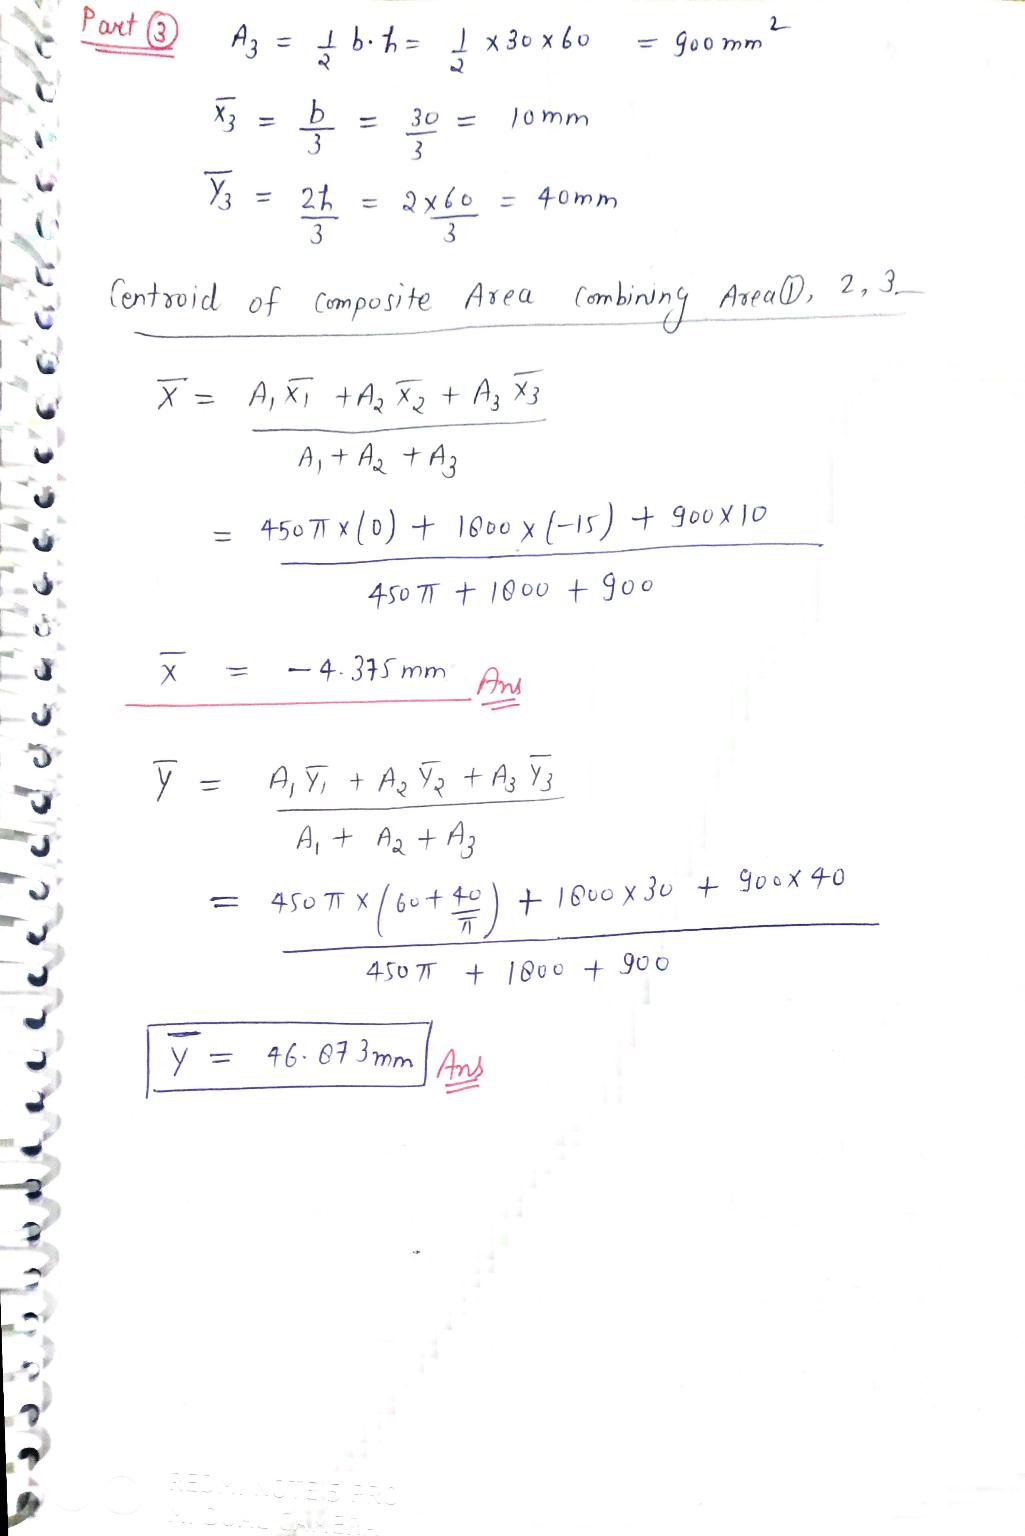 Part ③ A₃ = 1/2 b·h = 1/2 × 30 × 60 = 900 mm²
x̄₃ = b/3 = 30/3 = 10 mm
ȳ₃ = 2h/3 = 2×60/3 = 40 mm
Centroid of Composite Area Combining Area ①, 2, 3
X̄ = (A₁ x̄₁ + A₂ x̄₂ + A₃ x̄₃)/(A₁ + A₂ + A₃)
= (450 π × (0) + 1800 × (-15) + 900 × 10)/(450 π + 1800 + 900)
x̄ = - 4.375 mm Ans
ȳ = (A₁ ȳ₁ + A₂ ȳ₂ + A₃ ȳ₃)/(A₁ + A₂ + A₃)
= (450 π × (60 + 40/π) + 1800 × 30 + 900 × 40)/(450 π + 1800 + 900)
ȳ = 46.873 mm Ans
REDMI NOTE 5 PRO
MI DUAL CAMERA